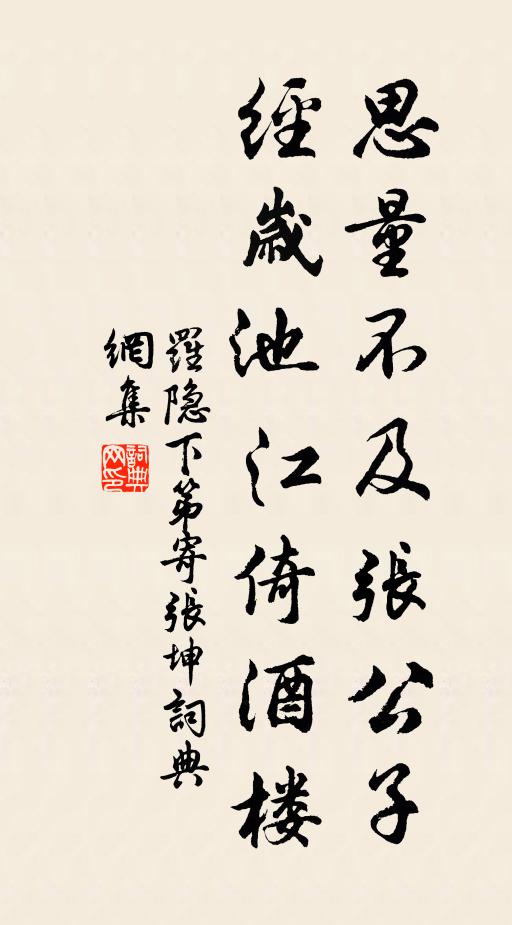 思量不及張公子
經歳池江倚酒楼
羅隐下第寄張坤詞典
網集
詞典网印